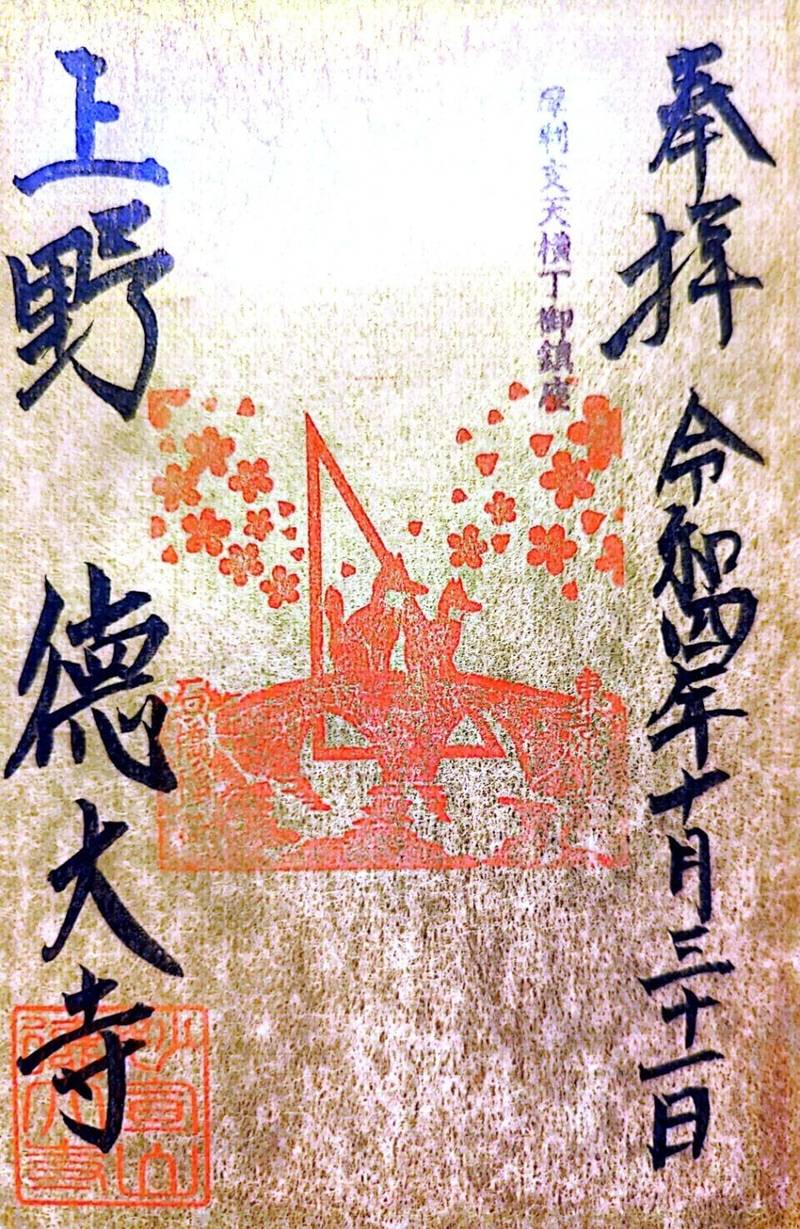 奉拝 令和四年十月三十一日
摩利支天横丁御鎮座
上野 徳大寺
妙宣山
徳大寺